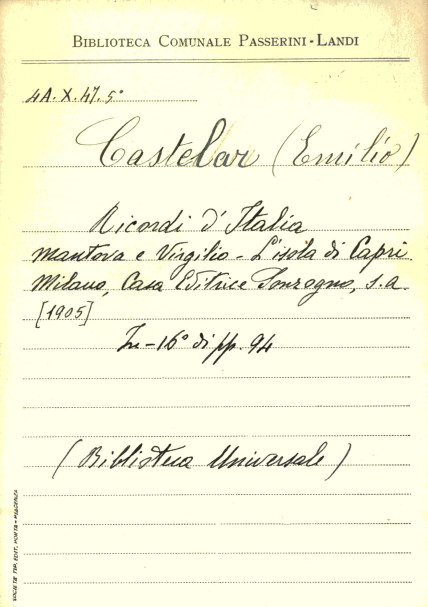 BIBLIOTECA COMUNALE PASSERINI-LANDI
4A. X. 47. 5°
Castelar (Emilio)
Ricordi d'Italia
Mantova e Virgilio - L'isola di Capri
Milano, Casa Editrice Sonzogno, s.a.
[1905]
In-16° di pp. 94
(Biblioteca Universale)
SOCIETÀ TIP. EDIT. PORTA - PIACENZA